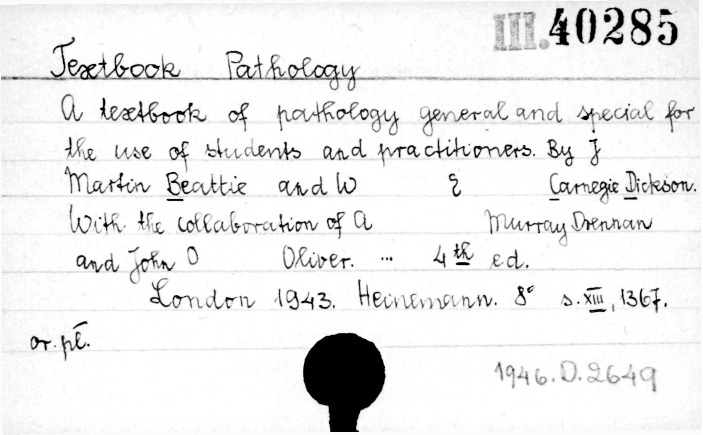 III. 40285
Textbook Pathology
A textbook of pathology general and special for
the use of students and practitioners. By J
Martin Beattie and W E Carnegie Dickson.
With the collaboration of A Murray Drennan
and John O Oliver. ... 4th ed.
London 1943. Heinemann. 8° s. XIII, 1367.
or. pl.
1946. D. 2649